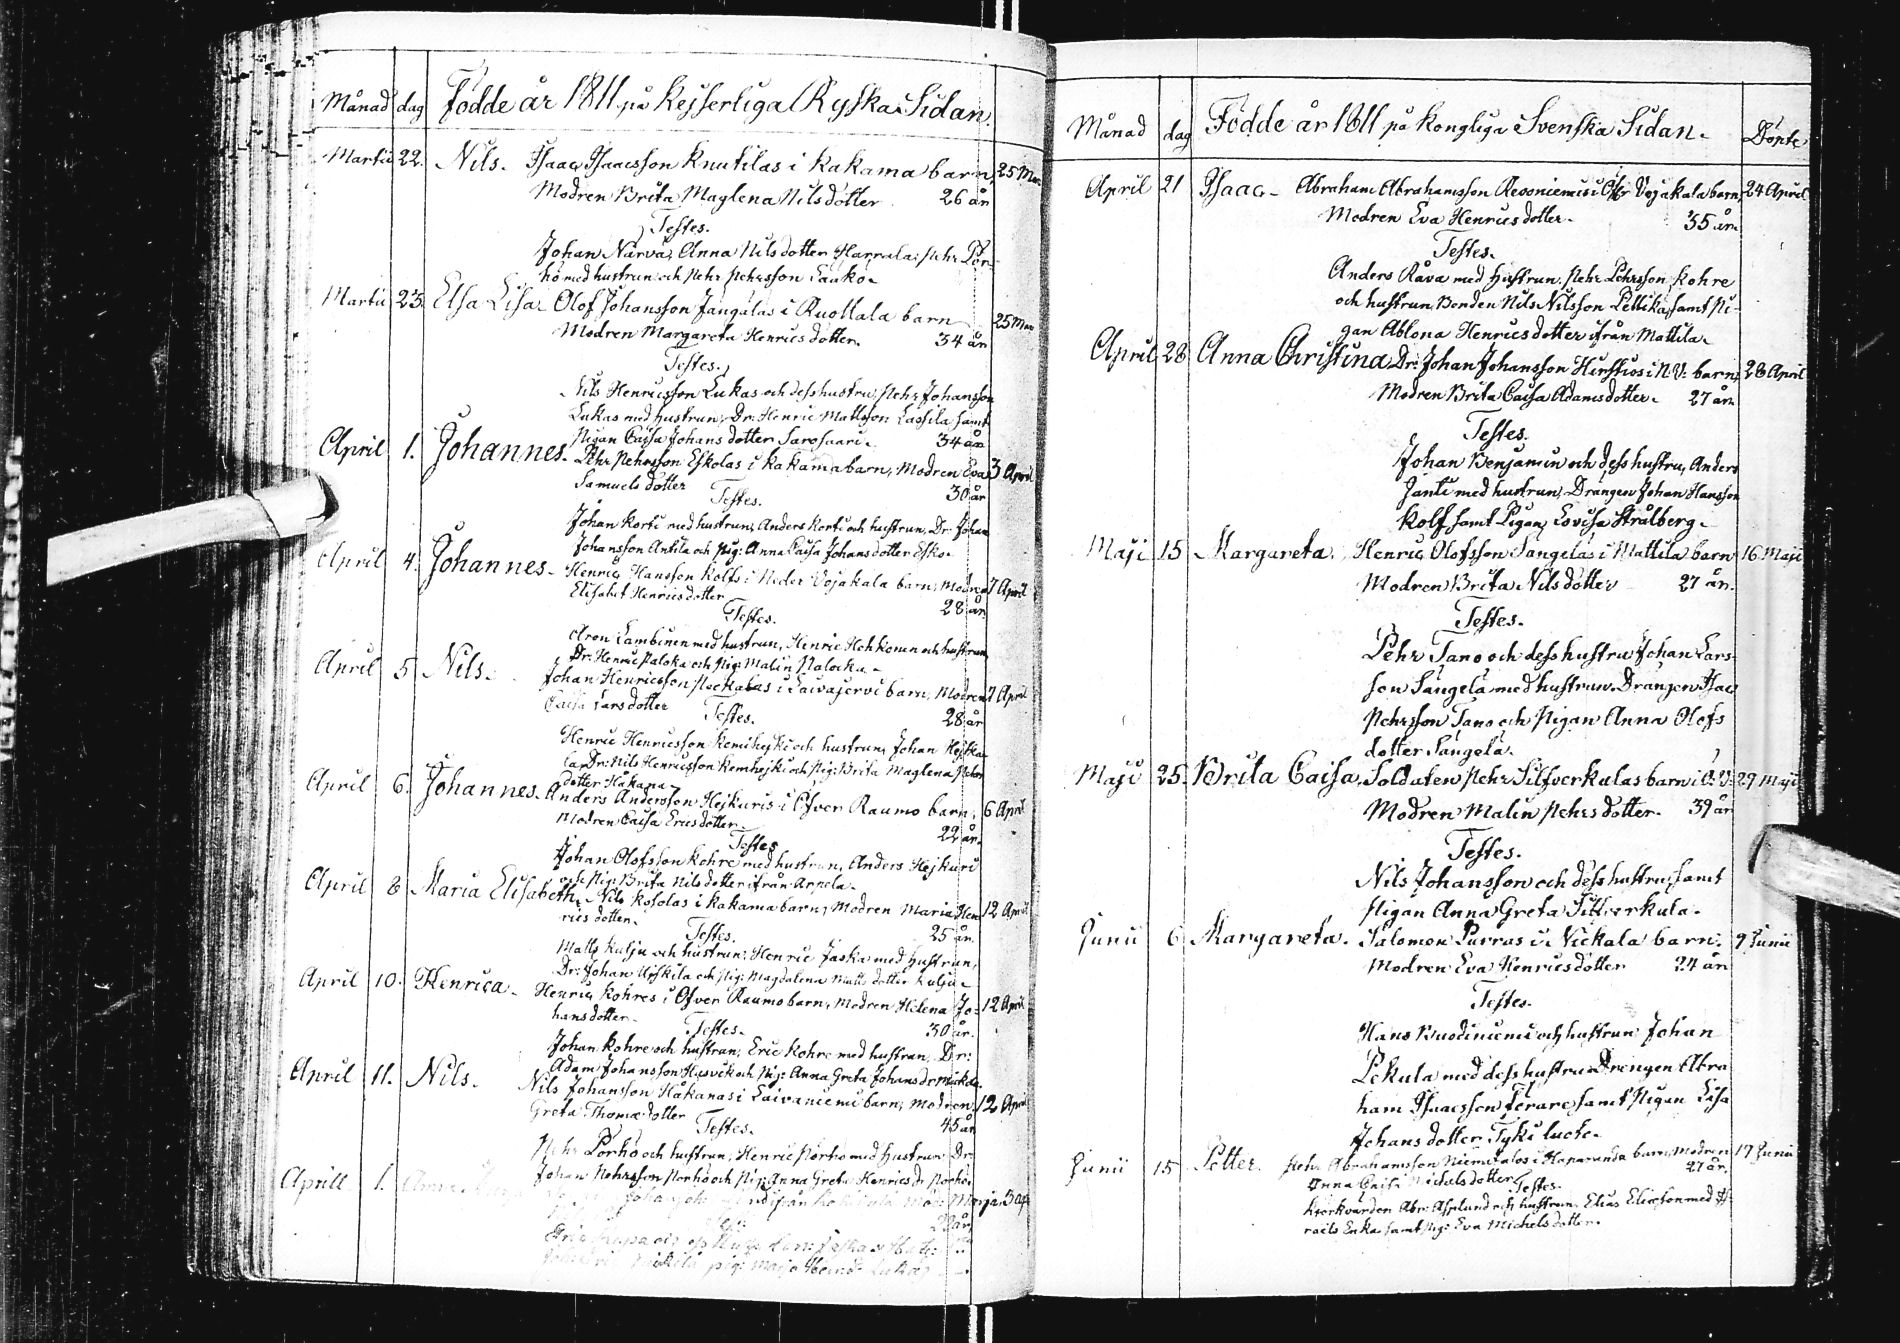 Månad dag Födde år 1811 på Kejserliga Ryska Sidan.
Martii 22. Nils. Isaac Isaacsson Knutilas i Kakama barn, 25 Mar
Modren Brita Maglena Nils dotter. 26 år
Testes.
Johan Narva, Anna Nils dotter Harrala, Pehr Pör-
hö med hustrun och Pehr Pehrsson Laako.
Martii 23. Elsa Lisa. Olof Johansson Jungalas i Ruottala barn 25 Mar
Modren Margareta Henrics dotter. 34 år
Testes.
Nils Henricsson Lukas och dess hustru, Pehr Johansson
Lukas med hustrun, Dr: Henric Mattsson Lassila samt
Pigan Caisa Johans dotter Sarosaari. 34 år
April 1. Johannes. Pehr Pehrsson Eskolas i Kakama barn, Modren Eva 3 April
Samuels dotter 30 år
Testes.
Johan Korti med hustrun, Anders Korti och hustrun, Dr: Johan
Johansson Antila och Pig: Anna Caisa Johans dotter Esko.
April 4. Johannes. Henric Hansson Kolfs i Neder Vojakala barn, Modren 7 April
Elisabet Henrics dotter 28 år
Testes.
Aron Lambinen med hustrun, Henric Hehkonen och hustrun,
Dr: Henric Paloka och Pig: Malin Palocka.
April 5 Nils. Johan Henricsson Peckalas i Laivajervi barn, Modren 7 April
Caisa Lars dotter 28 år
Testes.
Henric Henricsson Kemihejki och hustrun, Johan Hejska
la, Dr: Nils Henricsson Kemhejki och Pig: Brita Maglena Pehrs
dotter Håkana.
April 6. Johannes. Anders Andersson Hejkuris i Öfver Raumo barn, 6 April
Modren Caisa Erics dotter. 22 år.
Testes
Johan Olofsson Kohre med hustrun, Anders Hejkuri
och Pig: Brita Nils dotter ifrån Arpela.
April 8 Maria Elisabeth. Nils Kosolas i Kakama barn, Modren Maria Hen 12 April
rics dotter. 25 år.
Testes.
Matts Kulju och hustrun, Henric Jaska med hustrun,
Dr: Johan Uhskila och Pig: Magdalena Matts dotter Kulju.
April 10. Henrica. Henric Kohres i Öfver Raumo barn, Modren Helena Jo- 12 April
hans dotter. 30 år.
Testes.
Johan Kohre och hustrun, Eric Kohre med hustrun, Dr:
Adam Johansson Husvik och Pig: Anna Greta Johans dr
April 11. Nils. Nils Johansson Håkanas i Laivaniemi barn, Modren 12 April
Greta Thomæ dotter 45 år
Testes.
Pehr Pörhö och hustrun, Henric Pörhö med hustrun Dr
Johan Pehrsson Pörhö och Pig: Anna Greta Henrics dr Pörhö.
Aprill 1. Maria 5 ap
22 år
Månad dag Födde år 1811 på Kongliga Svenska Sidan. Döpte
April 21 Isaac. Abraham Abrahamsson Revoniemis i Öfr Vojakala barn, 24 April
Modren Eva Henrics dotter. 35 år.
Testes.
Anders Råva med hustrun, Pehr Pehrsson Kohre
och hustrun, Bonden Nils Nilsson Pettika, samt Pi-
gan Ablona Henrics dotter ifrån Mattila.
April 28 Anna Christina, Dr: Johan Johansson Hirstios i N: V: barn, 28 April
Modren Brita Caisa Adams dotter. 27 år.
Testes.
Johan Benjamin och dess hustru, Anders
Janti med hustrun, Drängen Johan Hansson
Kolf samt Pigan Lovisa Strålberg.
Maji 15 Margareta. Henric Olofsson Sangelas i Mattila barn 16 Maji
Modren Brita Nils dotter 27 år.
Testes.
Pehr Tano och dess hustru Johan Lars-
son Sangela med hustrun Drängen Isac
Pehrsson Tano och Pigan Anna Olofs
dotter Sangela.
Maji 25. Brita Caisa, Soldaten Pehr Silfverkulas barn i Ö: V: 29 Maji
Modren Malin Pehrs dotter. 39 år
Testes.
Nils Johansson och dess hustru, samt
Pigan Anna Greta Silfverkula.
Junii 6 Margareta. Salomon Purras i Nickala barn. 9 Junii
Modren Eva Henrics dotter 24 år
Testes.
Hans Buodiniemi och hustrun Johan
Pekula med dess hustru Drengen Abra
ham Isaacsson Ferare samt Pigan Lisa
Johans dotter Tykiluoto.
Junii 15 Petter. Pehr Abrahamsson Niemitalos i Haparanda barn, Modren 17 Junii
Anna Caisa Michels dotter 27 år.
Testes.
Abr: Asplund och hustrun, Elias Eliesson med Is-
raels Enka samt Pig: Eva Michels dotter.